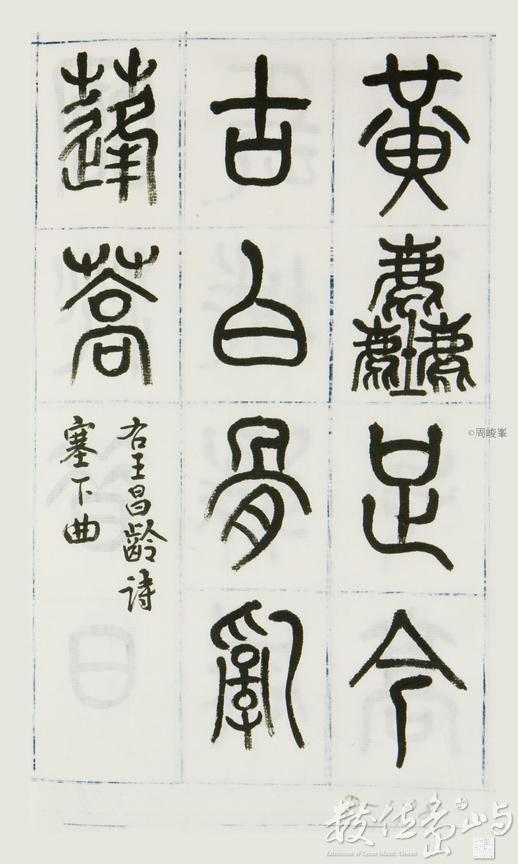 黃塵足今
古白骨亂
蓬蒿
右王昌齡詩
塞下曲
©周峻峯